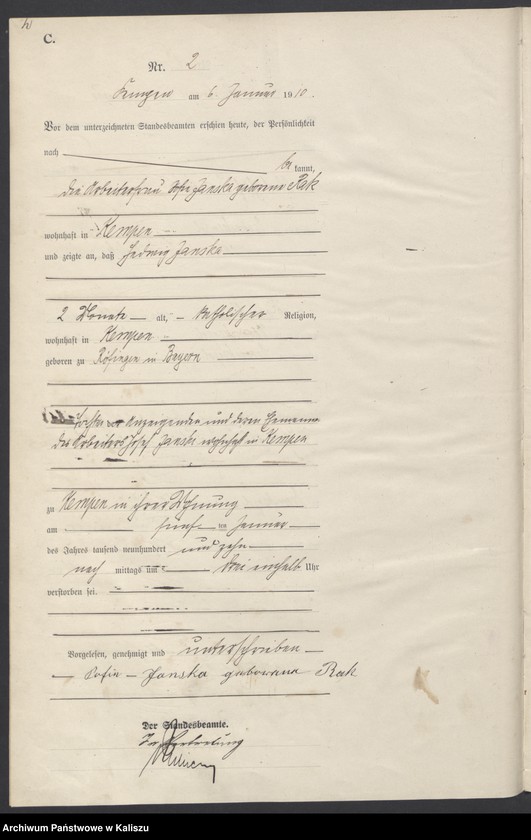 C.
Nr. 2
Kempen am 6. Januar 1910.
Vor dem unterzeichneten Standesbeamten erschien heute, der Persönlichkeit
nach
be kannt,
die Arbeiterfrau Sofie Janska geborene Rak
wohnhaft in Kempen
und zeigte an, daß Hedwig Janska
2 Monate alt, katholischer Religion,
wohnhaft in Kempen
geboren zu Röfingen in Bayern
Tochter der Anzeigenden und deren Ehemann
des Arbeiters Josef Janski wohnhaft in Kempen
zu Kempen in ihrer Wohnung
am fünf ten Januar
des Jahres tausend neunhundert und zehn
nach mittags um drei einhalb Uhr
verstorben sei.
Vorgelesen, genehmigt und unterschrieben
Sofie Janska geborene Rak
Der Standesbeamte.
In Vertretung
Archiwum Państwowe w Kaliszu